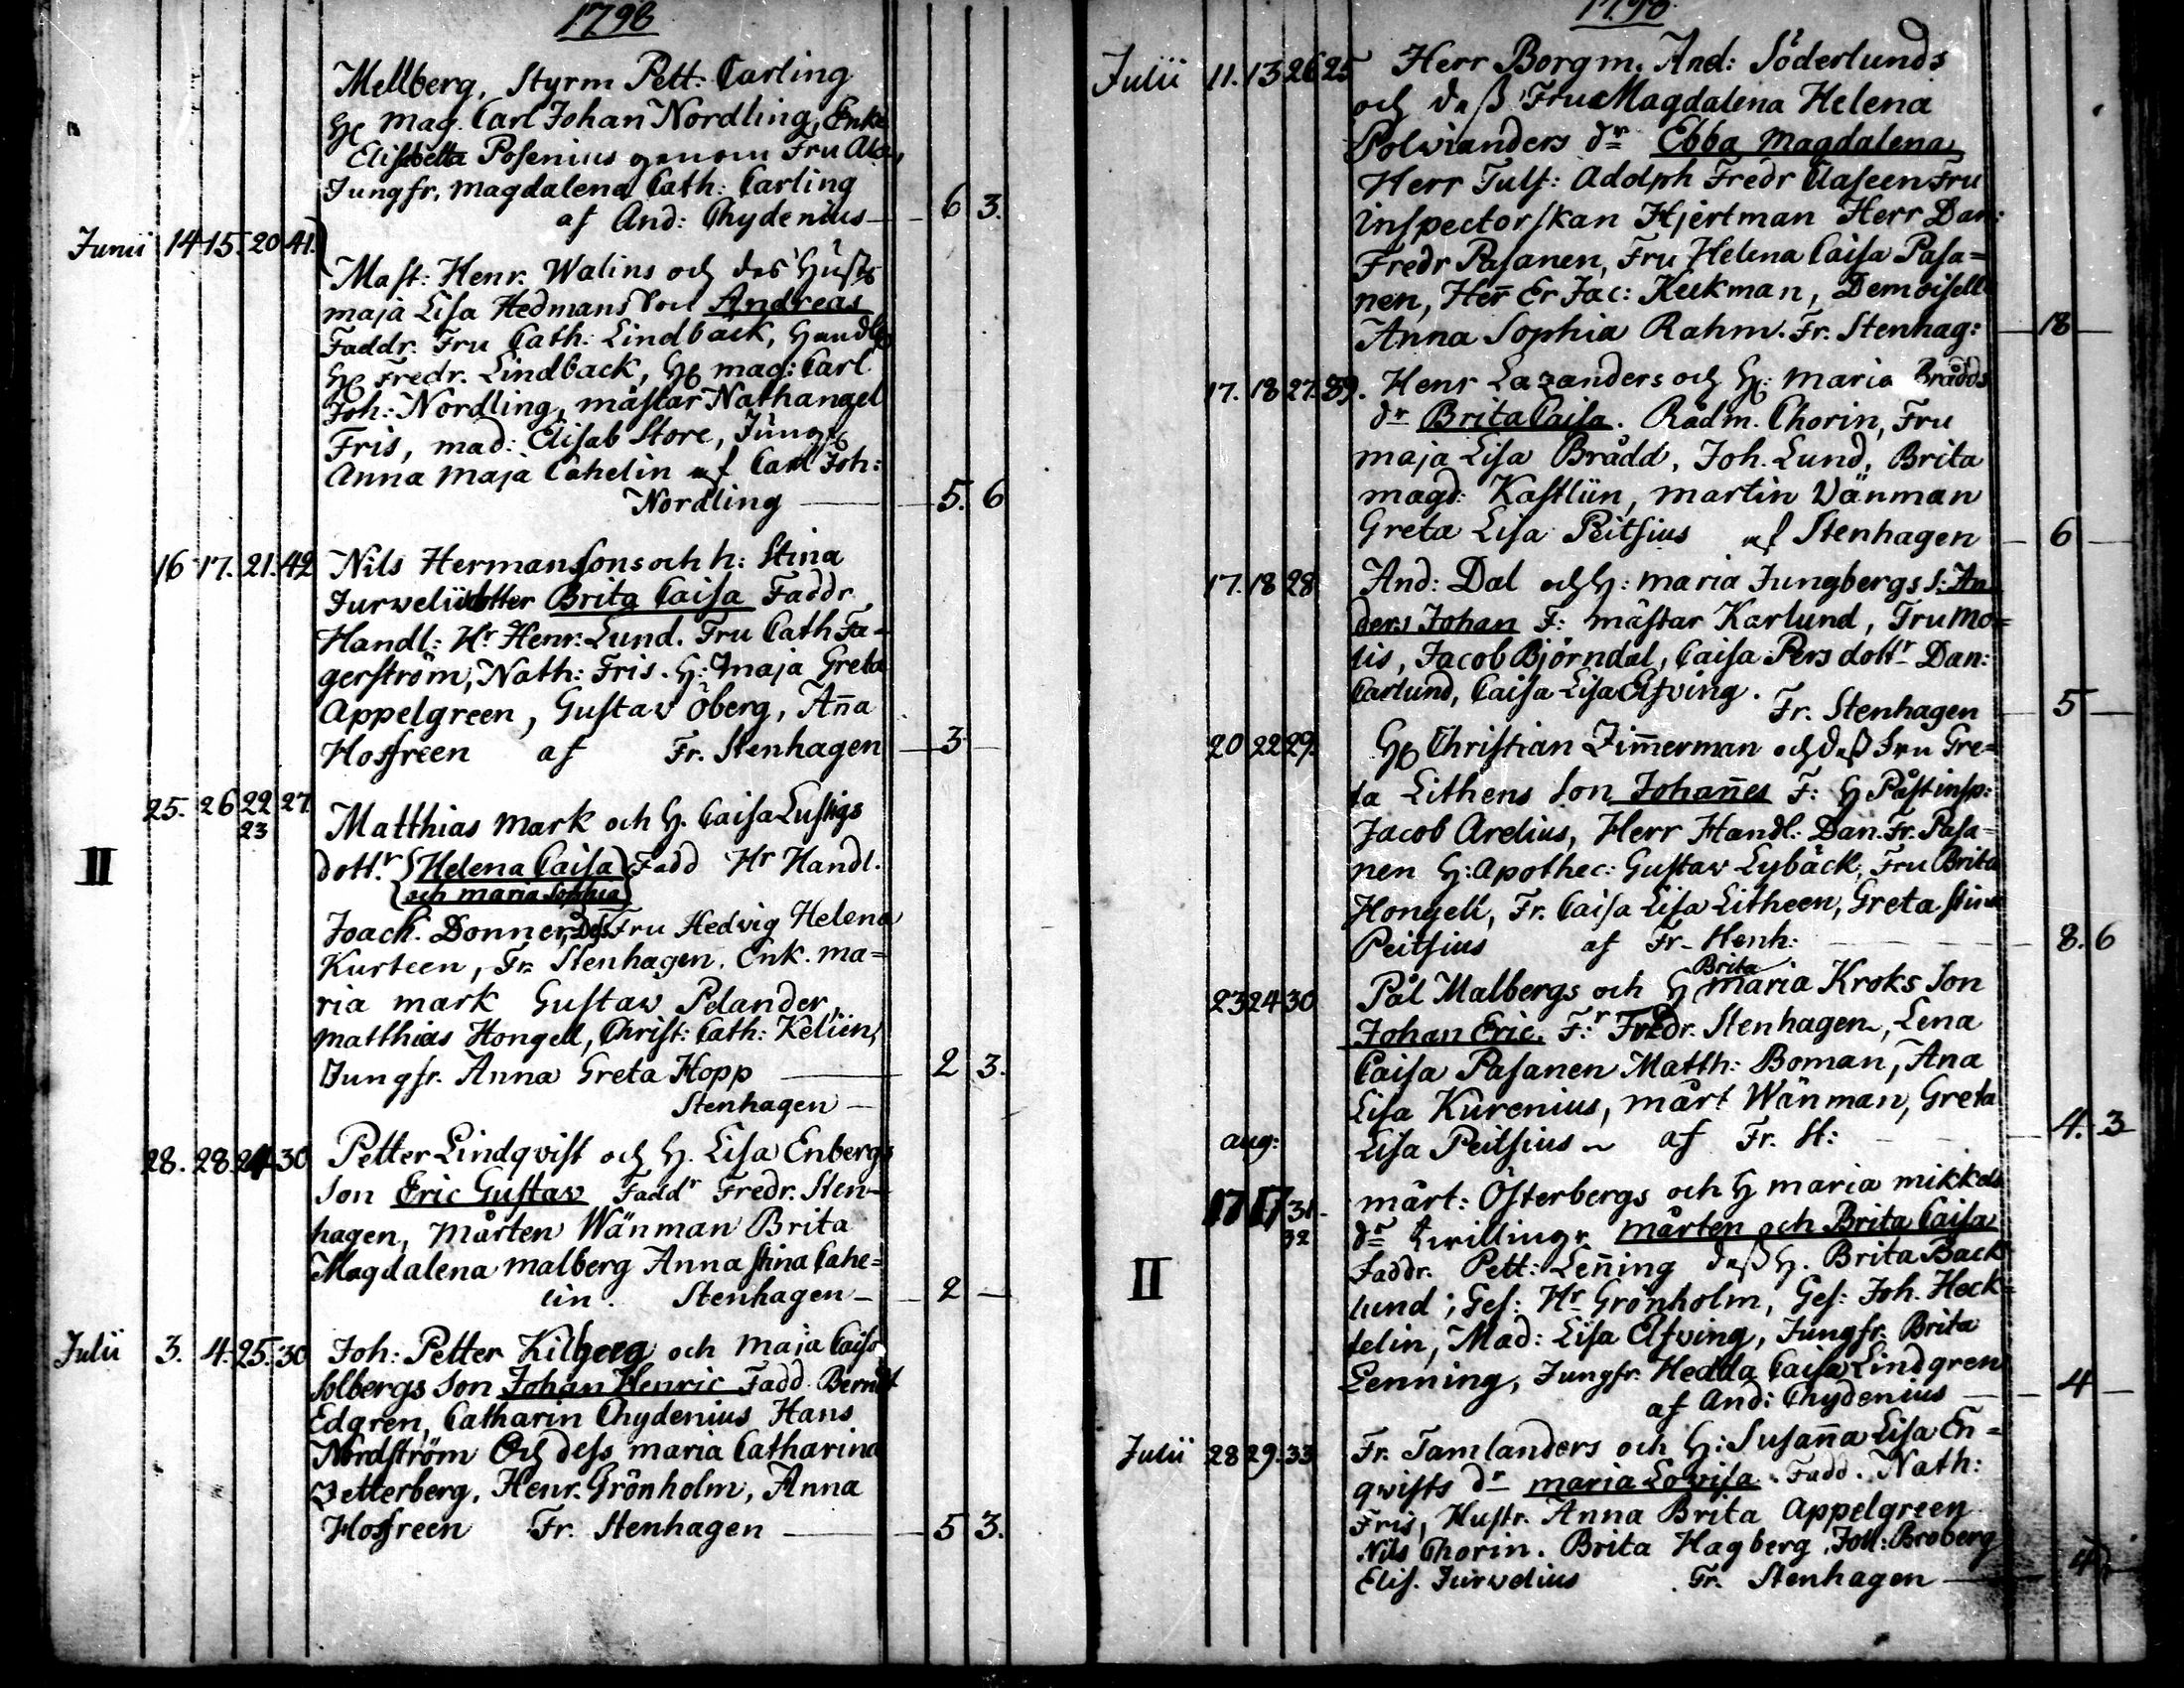 1798
Mellberg, Styrm Pett: Carling
H: Mag. Carl Johan Nordling, Enke
Elisabetta Posenius genom Fru
Jungfr. Magdalena Cath: Carling
af And: Chydenius — 6 3.
Junii 14 15. 20 41.
Mast: Henr. Walins och des Hust:
Maja Lisa Hedmans Son Andreas
Faddr. Fru Cath: Lindback, Handl
H: Fredr. Lindback, H: mag: Carl
Joh: Nordling, mästar Nathanael
Fris, mad: Elisab Store, Jungf:
Anna Maja Cahelin af Carl Joh:
Nordling — 5. 6
16 17. 21. 42 Nils Hermanssons och h: Stina
Jurwelii dotter Brita Caisa Faddr.
Handl: Hr Henr. Lund. Fru Cath Fa=
gerström, Nath: Fris. H: Maja Greta
Appelgreen, Gustav Öberg, Anna
Hoffreen af Fr. Stenhagen — 3 —
25. 26 22 27.
23
Matthias Mark och H. Caisa Lustigs
II dottr Helena Caisa Fadd Hr Handl.
och Maria Sophia
Joach. Donner, Des Fru Hedvig Helena
Kurteen, Fr. Stenhagen. Enk. Ma=
ria Mark Gustav Pelander,
Matthias Hongell, Christ: Cath: Keliin,
Jungfr. Anna Greta Hopp — 2 3.
Stenhagen —
28. 28 24. 30 Petter Lindqvist och H. Lisa Enbergs
Son Eric Gustav Faddr Fredr. Sten=
hagen, Mårten Wänman Brita
Magdalena Malberg Anna Stina Cahe=
lin. Stenhagen — 2 —
Julii 3. 4. 25. 30 Joh: Petter Kilberg och Maja Caisa
Solbergs Son Johan Henric Fadd. Berndt
Edgren, Catharin Chydenius Hans
Nordström Och dess Maria Catharina
Zetterberg, Henr. Grönholm, Anna
Hoffreen Fr. Stenhagen — 5 3.
1798.
Julii 11. 13 26 25 Herr Borgm. And: Söderlunds
och deß Fru Magdalena Helena
Polvianders dr Ebba Magdalena
Herr Tulf: Adolph Fredr Claseen Fru
inspectorskan Hjertman Herr Dan:
Fredr Pasanen, Fru Helena Caisa Pasa=
nen, Herr Er Jac: Keckman, Demoisell
Anna Sophia Rahm. Fr. Stenhag: — 18 —
17. 18 27. 39. Henr Lazanders och H: Maria Brådds
dr Brita Caisa. Rådm. Chorin, Fru
Maja Lisa Brådd, Joh. Lund, Brita
Magd: Kastliin, Martin Wänman
Greta Lisa Peitsius af Stenhagen — 6 —
17. 18 28 And: Dal och H: Maria Jungbergs S: An
ders Johan F: mästar Karlund, Fru Mo=
tis, Jacob Björndal, Caisa Persdottr Dan:
Carlund, Caisa Lisa Elfving.
Fr. Stenhagen — 5 —
20 22 29. H: Christian Zimmerman och deß Fru Gre=
ta Lithens Son Johannes F: H Påstinsp:
Jacob Arelius, Herr Handl: Dan. Fr. Pasa=
nen H: Apothec: Gustav Lybäck, Fru Brita
Hongell, Fr. Caisa Lisa Litheen, Greta Stina
Peitsius af Fr. Henh: — 8. 6
Brita
23 24 30 Pål Malbergs och H Maria Kroks Son
Johan Eric. F:r Fredr. Stenhagen, Lena
Caisa Pasanen Matth: Boman, Ana
Lisa Kurenius, Mårt Wänman, Greta
Lisa Peitsius af Fr. St: — 4. 3
Aug:
17 17 31. Mårt: Österbergs och H Maria Mikkels
32 dr twillingr Mårten och Brita Caisa
II Faddr. Pett: Lenning deß H. Brita Back
lund; Ges: Hr Grönholm, Ges: Joh. Heck=
telin, Mad: Lisa Elfving, Jungfr: Brita
Lenning, Jungfr: Hedda Caisa Lindgren
af And: Chydenius — 4 —
Julii 28 29. 33 Fr. Tamlanders och H: Susanna Lisa En=
qwists dr Maria Lovisa. Fadd. Nath:
Fris, Hustr. Anna Brita Appelgreen
Nils Chorin. Brita Hagberg, Joh: Broberg
Elis. Jurvelius Fr. Stenhagen — 4